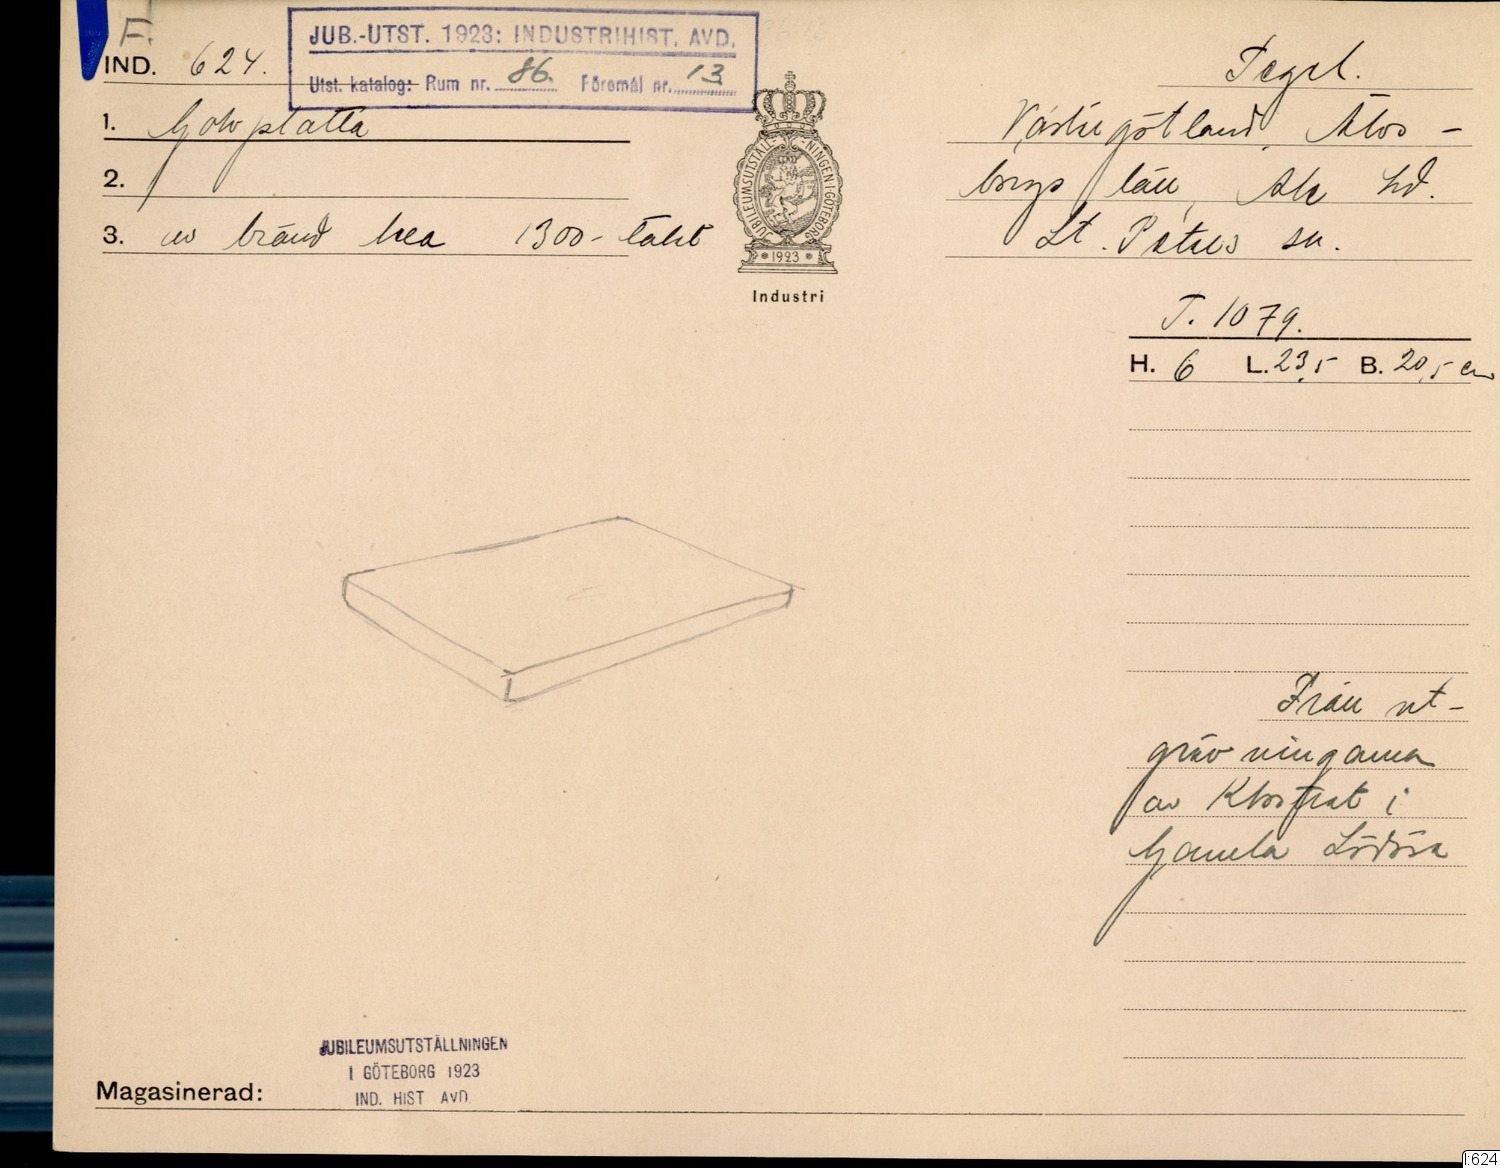 F.
IND. 624.
JUB.-UTST. 1923: INDUSTRIHIST. AVD.
Utst. katalog: Rum nr. 86. Föremål nr. 13
1. Golvplatta
2.
3. av bränd lera 1300-talet
JUBILEUMSUTSTÄLLNINGEN I GÖTEBORG
1923
Industri
Tegel.
Västergötland, Älvs-
borgs län, Ale hd.
St. Peters sn.
T. 1079.
H. 6 L. 23,5 B. 20,5 cm
Från ut-
grävningarna
av Klostret i
Gamla Lödöse
JUBILEUMSUTSTÄLLNINGEN
I GÖTEBORG 1923
IND. HIST AVD.
Magasinerad:
I:624